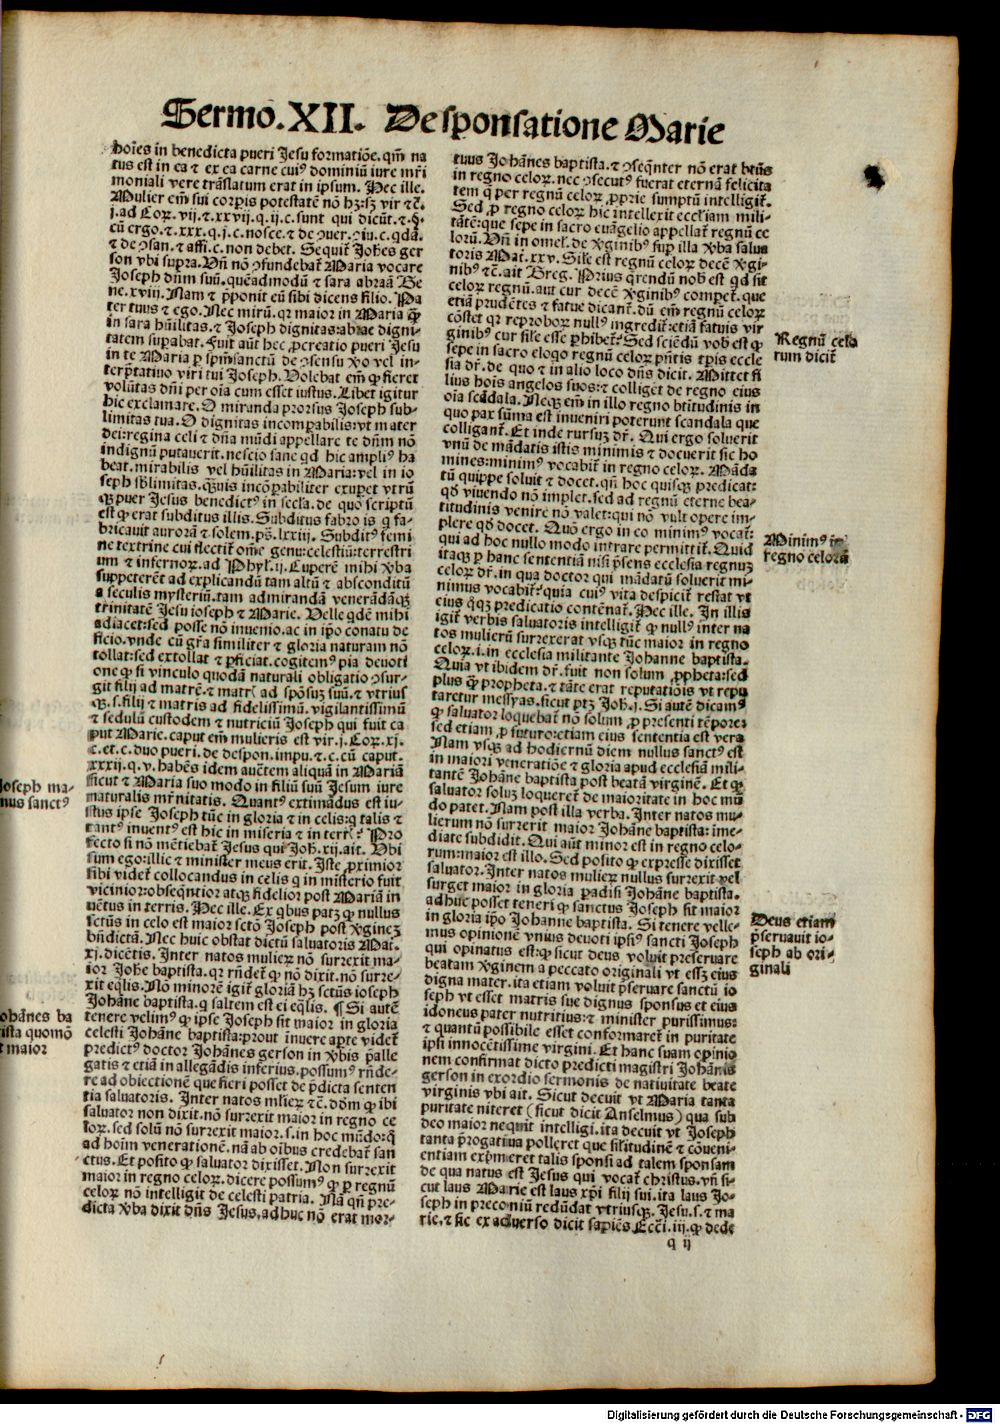 Sermo.XII. De sponsatione Marie
hoīes in benedicta pueri Jesu formatiōe.qm̄ na
tus est in ea ⁊ ex ea carne cui⁹ dominiū iure mr̄i
moniali vere trāslatum erat in ipsum. Hec ille.
Mulier em̄ sui corpis potestatē nō hꝫ:sꝫ vir ⁊c̄.
j.ad Coꝝ. vij.⁊.xxvij.q.ij.c.sunt qui dicūt.⁊.§.
cū ergo.⁊.xxx.q.j.c.nosce.⁊ de ↄuer.ↄiu.c.qdā.
⁊ de ↄsan.⁊ affi.c.non debet. Sequit̄ Joh̄es ger
son vbi supra. Vn̄ nō ↄfundebat̄ Maria vocare
Joseph dn̄m suū.quēadmodū ⁊ sara abraā Ge
ne.xviij. Nam ⁊ p̄ponit eū sibi dicens filio. Pa
ter tuus ⁊ ego. Nec mirū.qꝛ maior in Maria ꝙ̄
in sara hūilitas.⁊ Joseph dignitas:abrae digni
tatem supabat. Fuit aūt hec ꝓcreatio pueri Jesu
in te Maria ꝑ sp̄m̄sanctū de ↄsensu ꝟo vel in-
terp̄tatiuo viri tui Joseph. Volebat em̄ ꝙ fieret
volūtas dn̄i per oīa cum esset iustus. Libet igitur
hic exclamare. O miranda ꝓorsus Joseph sub-
limitas tua. O dignitas incomꝑabilis:vt mater
dei:regina celi ⁊ dn̄a mūdi appellare te dn̄m nō
indignū putauerit.nescio sane qd hic ampli⁹ ha
beat.mirabilis vel hūilitas in Maria:vel in io
seph sb̄limitas.q̄uis incōꝑabiliter exupet vtrū
qꝫ puer Jesus benedict⁹ in secla.de quo scriptū
est ꝙ erat subditus illis. Subditus fabro is q fa-
bricauit aurorā ⁊ solem.ps̄.lxxiij. Subdit⁹ femi
ne textrine cui flectit̄ om̄e genu:celestiū:terrestri
um ⁊ infernoꝝ.ad Phyl.ij. Cuperē mihi ꝟba
suppeterēt ad explicandū tam altū ⁊ abscōditū
a seculis mysteriū.tam admirandā venerādāqꝫ
trinitatē Jesu ioseph ⁊ Marie. Velle qdē mihi
adiacet:sed posse nō inuenio.ac in ip̄o conatu de
ficio.vnde cū gr̄a similiter ⁊ gloria naturam nō
tollat:sed extollat ⁊ ꝑficiat.cogitem⁹ pia deuoti
one ꝙ si vinculo quodā naturali obligatio ↄsur-
git filij ad matrē.⁊ matr̄ ad spōsuꝫ suū.⁊ vtrius
qꝫ.s.filij ⁊ matris ad fidelissimū.vigilantissimū
⁊ sedulū custodem ⁊ nutriciū Joseph qui fuit ca
put Marie.caput em̄ mulieris est vir.j.Coꝝ.xj.
⁊.et.c.duo pueri.de despon.impu.⁊.c.cū caput.
xxxij.q.v.habēs idem auctem aliquā in Mariā
sicut ⁊ Maria suo modo in filiū suū Jesum iure
naturalis mr̄nitatis. Quant⁹ extimādus est iu-
stus ipse Joseph tūc in gloria ⁊ in celis:q talis ⁊
tant⁹ inuent⁹ est hic in miseria ⁊ in terr̄? Pro
fecto si nō mētiebat̄ Jesus qui Joh̄.xij.ait. Vbi
sum ego:illic ⁊ minister meus erit. Iste ꝓximior
sibi videt̄ collocandus in celis q in misterio fuit
vicinior:obseqntior atqꝫ fidelior post Mariā in
uētus in terris. Hec ille. Ex qbus patꝫ ꝙ nullus
sctūs in celo est maior sctō Joseph post ꝟgineꝫ
bn̄dictā. Nec huic obstat dictū saluatoris Mat̄.
xj.dicētis. Inter natos mulieꝝ nō surrexit ma-
ior Joh̄e baptista.qꝛ rn̄det̄ ꝙ nō dixit.nō surre-
xit eqlis. Nō minorē igit̄ gloriā hꝫ sctūs ioseph
Johāne baptista.q saltem est ei eqlis. ¶ Si autē
tenere velim⁹ ꝙ ipse Joseph sit maior in gloria
celesti Johāne baptista:prout inuere apte videt̄
predict⁹ doctor Johānes gerson in ꝟbis p̄alle
gatis ⁊ etiā in allegādis inferius.possum⁹ rn̄de-
re ad obiectionē que fieri posset de p̄dicta senten
tia saluatoris. Inter natos mlieꝝ ⁊c̄. dōm ꝙ ibi
saluator non dixit.nō surrexit maior in regno ce
loꝝ.sed solū nō surrexit maior.s.in hoc mūdo:q̄
ad hoīm venerationē.nā ab oībus credebat̄ san
ctus. Et posito ꝙ saluator dixisset. Non surrexit
maior in regno celoꝝ.dicere possum⁹ ꝙ ꝑ regnū
celoꝝ nō intelligit de celesti patria. Nā qn̄ pre-
dicta ꝟba dixit dn̄s Jesus,adhuc nō erat mor-
tuus Johānes baptista.⁊ ↄseqn̄ter nō erat bt̄ūs
in regno celoꝝ.nec ↄsecut⁹ fuerat eternā felicita
tem q per regnū celoꝝ ꝓprie sumptū intelligit̄.
Sed ꝓ regno celoꝝ hic intellexit eccl̄iam mili-
tātē:que sepe in sacro euāgelio appellat̄ regnū ce
lorū. Vn̄ in omel̄.de ꝟginib⁹ sup illa ꝟba salua
toris Mat̄.xxv. Sil̄e est regnū celoꝝ decē ꝟgi-
nib⁹ ⁊c̄.ait Greg. Prius q̄rendū nob̄ est qd sit
celoꝝ regnū.aut cur decē ꝟginib⁹ compet̄.que
etiā prudētes ⁊ fatue dicant̄.dū em̄ regnū celoꝝ
cōstet qꝛ reproboꝝ null⁹ ingredit̄:etiā fatuis vir
ginib⁹ cur sil̄e esse ꝑhibet̄? Sed sciēdū vob̄ est ꝙ
sepe in sacro eloqo regnū celoꝝ p̄ntis tp̄is eccle
sia dr̄.de quo ⁊ in alio loco dn̄s dicit. Mittet fi
lius hoīs angelos suos:⁊ colliget de regno eius
oīa scādala. Neqꝫ em̄ in illo regno btītudinis in
quo pax sūma est inueniri poterunt scandala que
colligant̄. Et inde rursuꝫ dr̄. Qui ergo soluerit
vnū de mādatis istis minimis ⁊ docuerit sic ho
mines:minim⁹ vocabit̄ in regno celoꝝ. Māda
tū quippe soluit ⁊ docet.qn̄ hoc quisqꝫ predicat:
qd̄ viuendo nō implet.sed ad regnū eterne bea-
titudinis venire nō valet:qui nō vult opere im-
plere qd̄ docet. Quō ergo in eo minim⁹ vocat̄:
qui ad hoc nullo modo intrare permittit̄. Quid
itaqꝫ ꝑ hanc sententiā nisi p̄sens ecclesia regnuꝫ
celoꝝ dr̄.in qua doctor qui mādatū soluerit mi-
nimus vocabit̄:quia cui⁹ vita despicit̄ restat vt
eius qqꝫ predicatio contēnat̄. Hec ille. In illis
igit̄ verbis saluatoris intelligit̄ ꝙ null⁹ inter na
tos mulierū surrexerat vsqꝫ tūc maior in regno
celoꝝ.i.in ecclesia militante Johanne baptista.
Quia vt ibidem dr̄.fuit non solum ꝓpheta:sed
plus ꝙ̄ propheta.⁊ tāte erat reputatiōis vt repu
taretur messyas.sicut ptꝫ Joh̄.j. Si autē dicam⁹
ꝙ saluator loquebat̄ nō solum ꝓ presenti tēpore:
sed etiam ꝓ futuro:etiam eius sententia est vera
Nam vsqꝫ ad hodiernū diem nullus sanct⁹ est
in maiori veneratiōe ⁊ gloria apud ecclesiā mili-
tantē Johāne baptista post beatā virginē. Et ꝙ
saluator soluꝫ loqueret̄ de maioritate in hoc mū
do patet. Nam post illa verba. Inter natos mu-
lierum nō surrexit maior Johāne baptista: ime-
diate subdidit. Qui aūt minor est in regno celo-
rum:maior est illo. Sed posito ꝙ expresse dixisset
saluator. Inter natos mulieꝝ nullus surrexit vel
surget maior in gloria ꝑadisi Johāne baptista.
adhuc posset teneri ꝙ sanctus Joseph sit maior
in gloria ip̄o Johanne baptista. Si tenere velle-
mus opinionē vnius deuoti ipsi⁹ sancti Joseph
qui opinatus est:ꝙ sicut deus voluit preseruare
beatam ꝟginem a peccato originali vt esset eius
digna mater.ita etiam voluit p̄seruare sanctū io
seph vt esset matris sue dignus sponsus et eius
idoneus pater nutritius:⁊ minister purissimus:
⁊ quantū possibile esset conformaret̄ in puritate
ipsi innocētissime virgini. Et hanc suam opinio
nem confirmat dicto predicti magistri Johānis
gerson in exordio sermonis de natiuitate beate
virginis vbi ait. Sicut decuit vt Maria tanta
puritate niteret (sicut dicit Anselmus) qua sub
deo maior nequit intelligi.ita decuit vt Joseph
tanta p̄rogatiua polleret que sil̄itudinē ⁊ cōueni-
entiam exp̄meret talis sponsi ad talem sponsam
de qua natus est Jesus qui vocat̄ christus.vn̄ si-
cut laus Marie est laus xp̄i filij sui.ita laus Jo-
seph in preconiū redūdat vtriusqꝫ. Jesu.s.⁊ ma
rie.⁊ sic ex aduerso dicit sapiēs Ecci̅.iij.ꝙ dede
q ij
Joseph ma-
nus sanct⁹
ohānes ba
ista quomō
t maior
Regnū celo
rum dicit̄
Minim⁹ in
regno celorū
Deus etiam
p̄seruauit io-
seph ab ori-
ginali
Digitalisierung gefördert durch die Deutsche Forschungsgemeinschaft - DFG